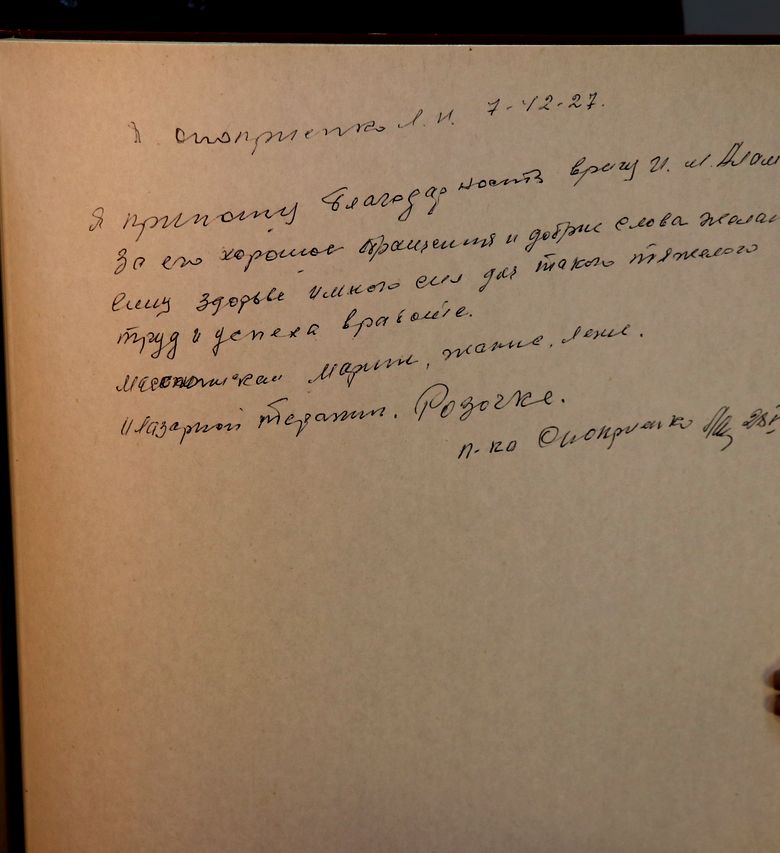 Я Оноприенко Л. И. 7-42-27.
Я приношу благодарность врачу И. М.
За его хорошое обращения и добрие слова желаю
Ему здоровье и много сил для такого тяжелого
труд и успеха в работе.
Марин, жание, Лене.
И Лазарной терапии. Розочке.
п-ка Оноприенко